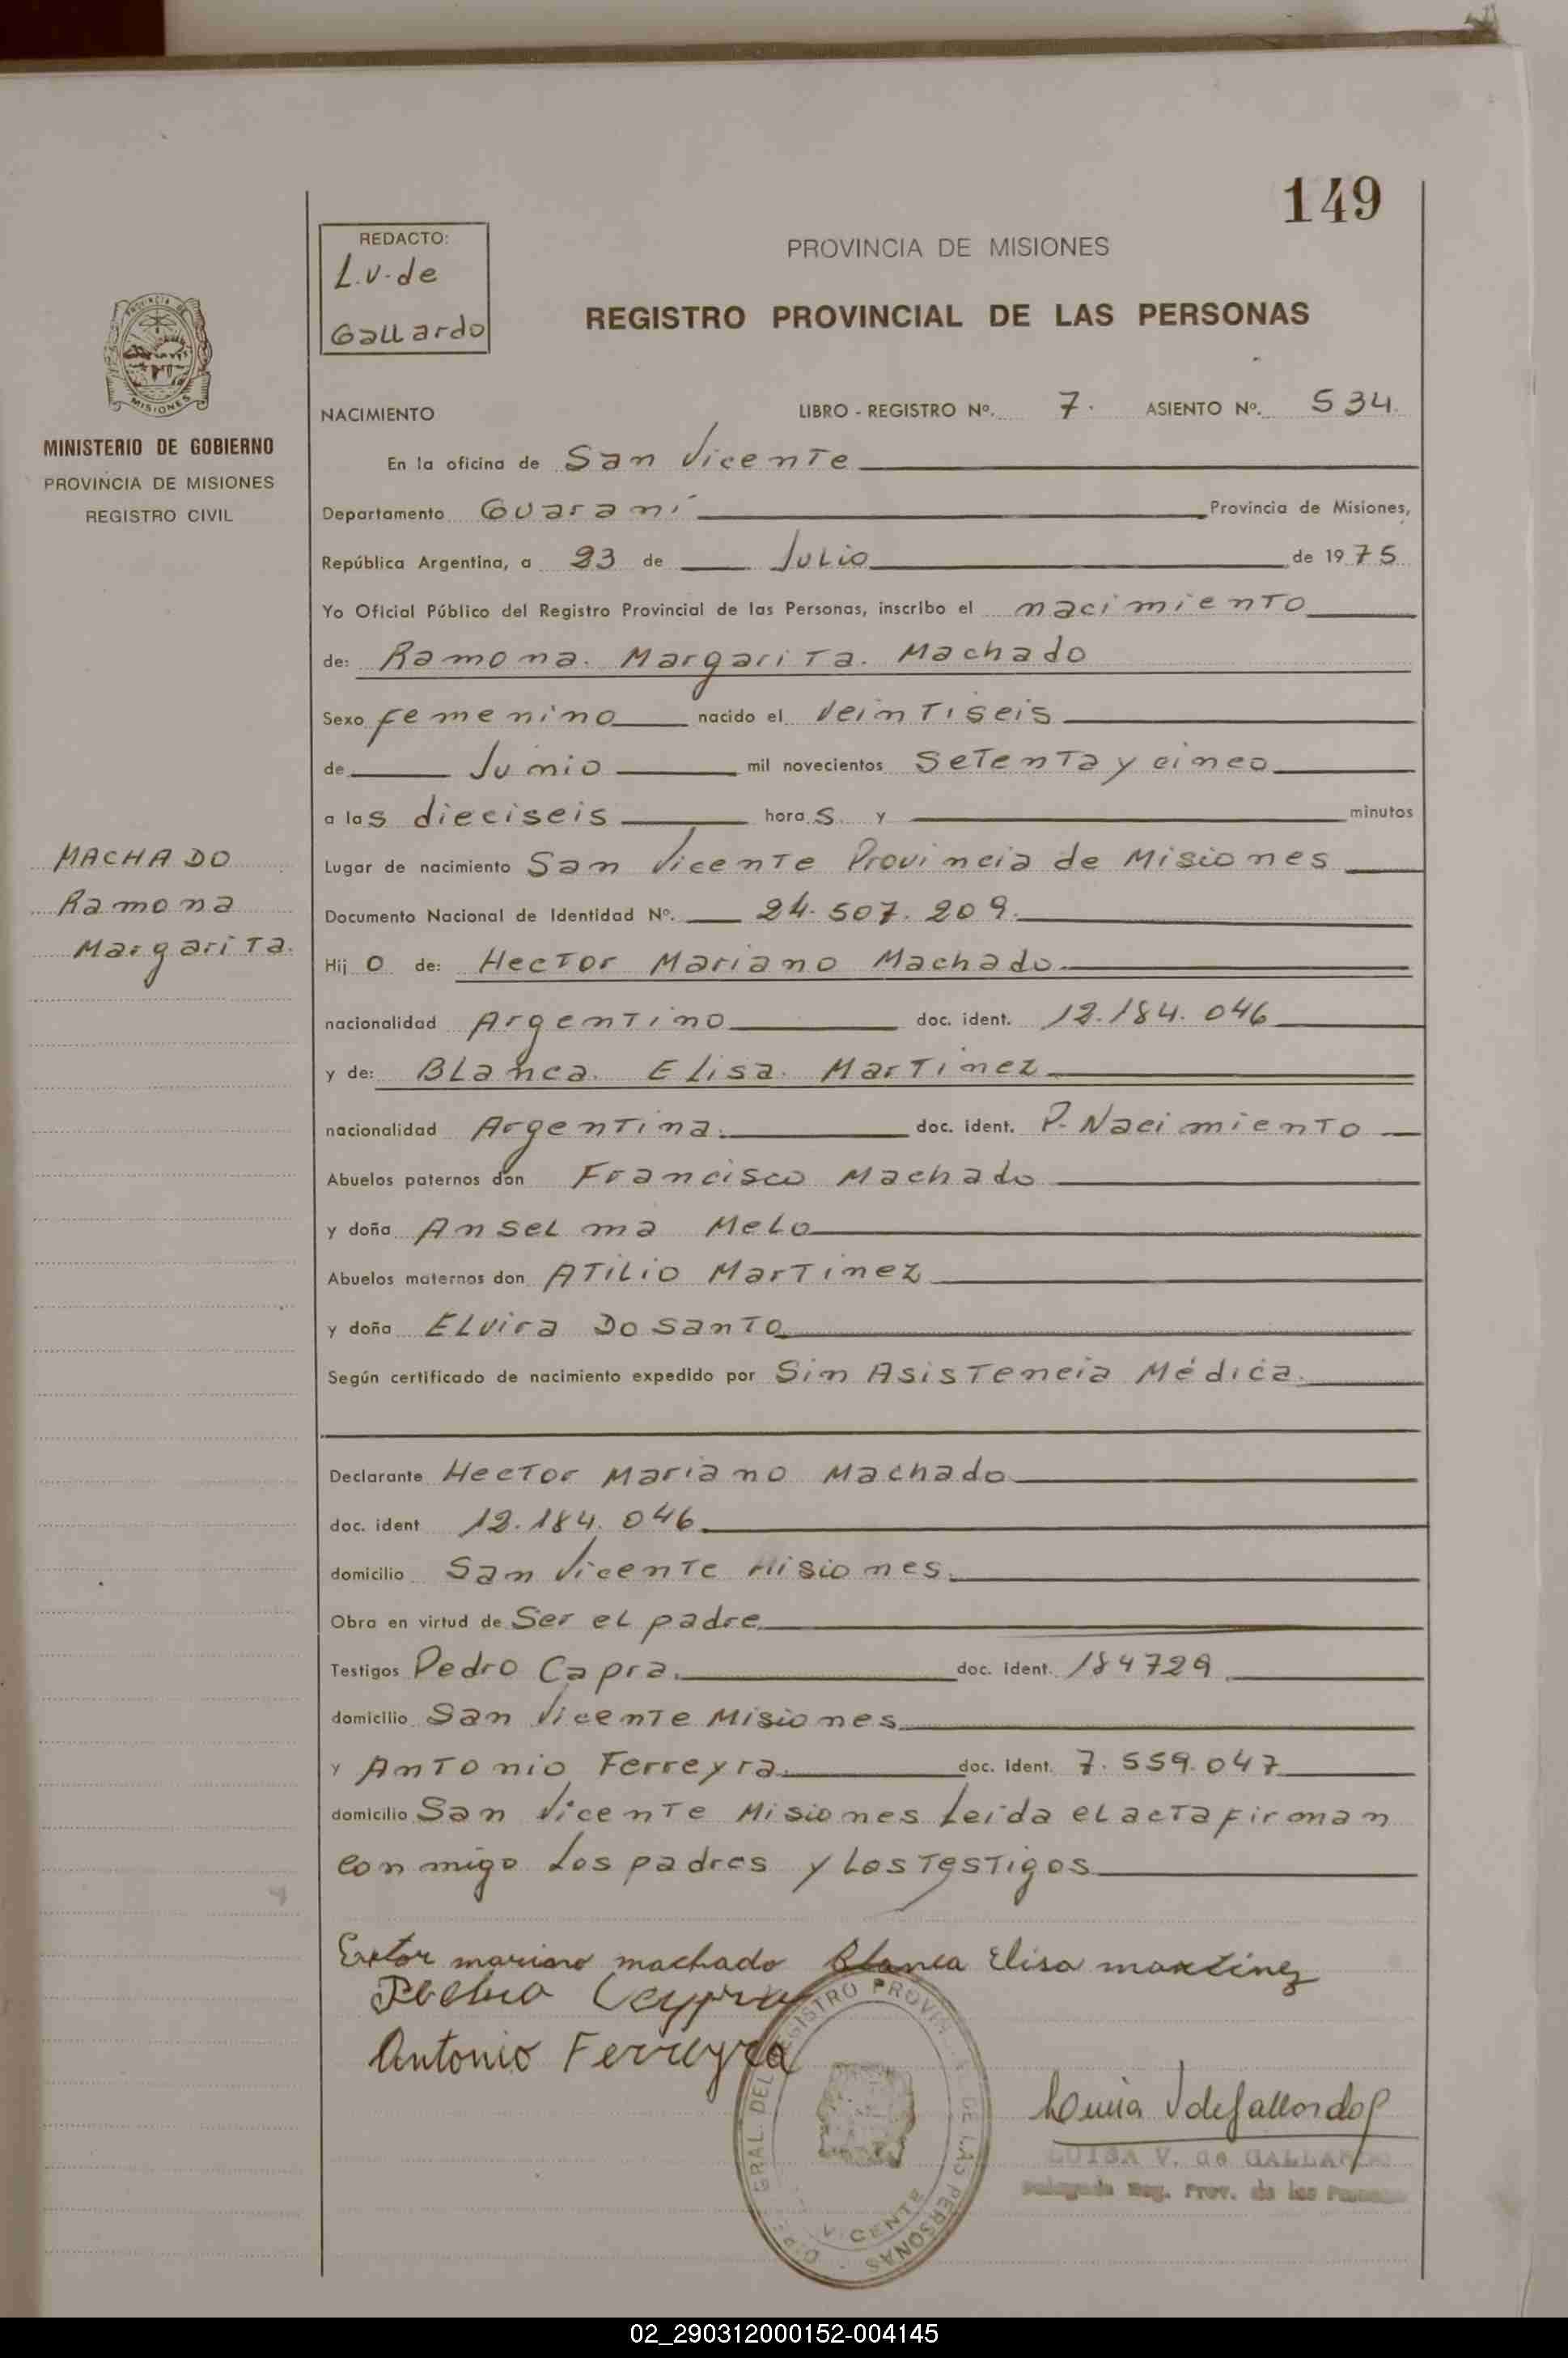 149
REDACTO:
L.V. de
Gallardo
PROVINCIA DE MISIONES
REGISTRO PROVINCIAL DE LAS PERSONAS
PROVINCIA DE
MISIONES
MINISTERIO DE GOBIERNO
PROVINCIA DE MISIONES
REGISTRO CIVIL
NACIMIENTO LIBRO - REGISTRO Nº. 7. ASIENTO Nº. 534
En la oficina de San Vicente
Departamento Guaraní Provincia de Misiones,
República Argentina, a 23 de Julio de 1975
Yo Oficial Público del Registro Provincial de las Personas, inscribo el nacimiento
de: Ramona. Margarita. Machado
Sexo femenino nacido el Veintiseis
de Junio mil novecientos Setenta y cinco
a las dieciseis horas y minutos
MACHADO
Ramona
Margarita.
Lugar de nacimiento San Vicente Provincia de Misiones
Documento Nacional de Identidad Nº. 24.507.209.
Hijo de: Hector Mariano Machado
nacionalidad Argentino doc. ident. 12.184.046
y de: Blanca. Elisa. Martinez
nacionalidad Argentina. doc. ident. P. Nacimiento
Abuelos paternos don Francisco Machado
y doña Anselma Melo
Abuelos maternos don Atilio Martinez
y doña Elvira Do santo
Según certificado de nacimiento expedido por Sin Asistencia Médica.
Declarante Hector Mariano Machado
doc. ident 12.184.046
domicilio San Vicente Misiones.
Obra en virtud de Ser el padre
Testigos Pedro Capra. doc. ident. 184729
domicilio San Vicente Misiones
y Antonio Ferreyra. doc. Ident. 7.559.047
domicilio San Vicente Misiones Leida el acta firman
conmigo Los padres y Los Testigos
Extor mariano machado Blanca Elisa martinez
Pedro Capra
Antonio Ferreyra
GRAL. DEL REGISTRO PROVIN DE LAS PERSONAS
V CENTE
Luisa V de Gallardo
LUISA V. de GALLARDO
Delegada Reg. Prov. de las Personas
02_290312000152-004145